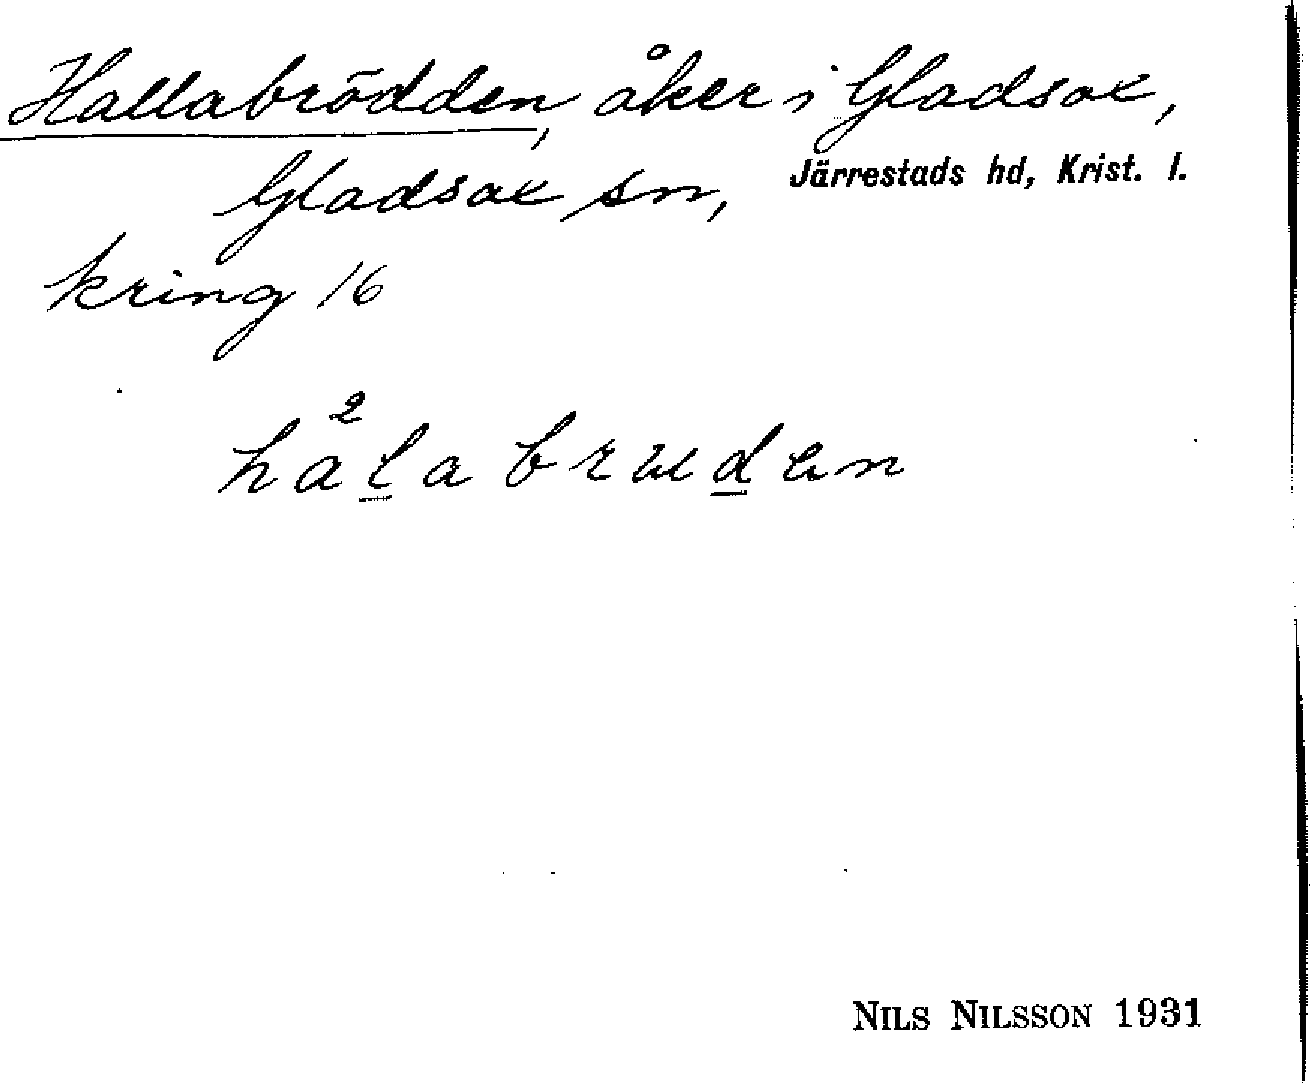 Hallabrödden, åker i Gladsax,
Gladsax sn, Järrestads hd, Krist. l.
kring 16
ha²labrudən
NILS NILSSON 1931